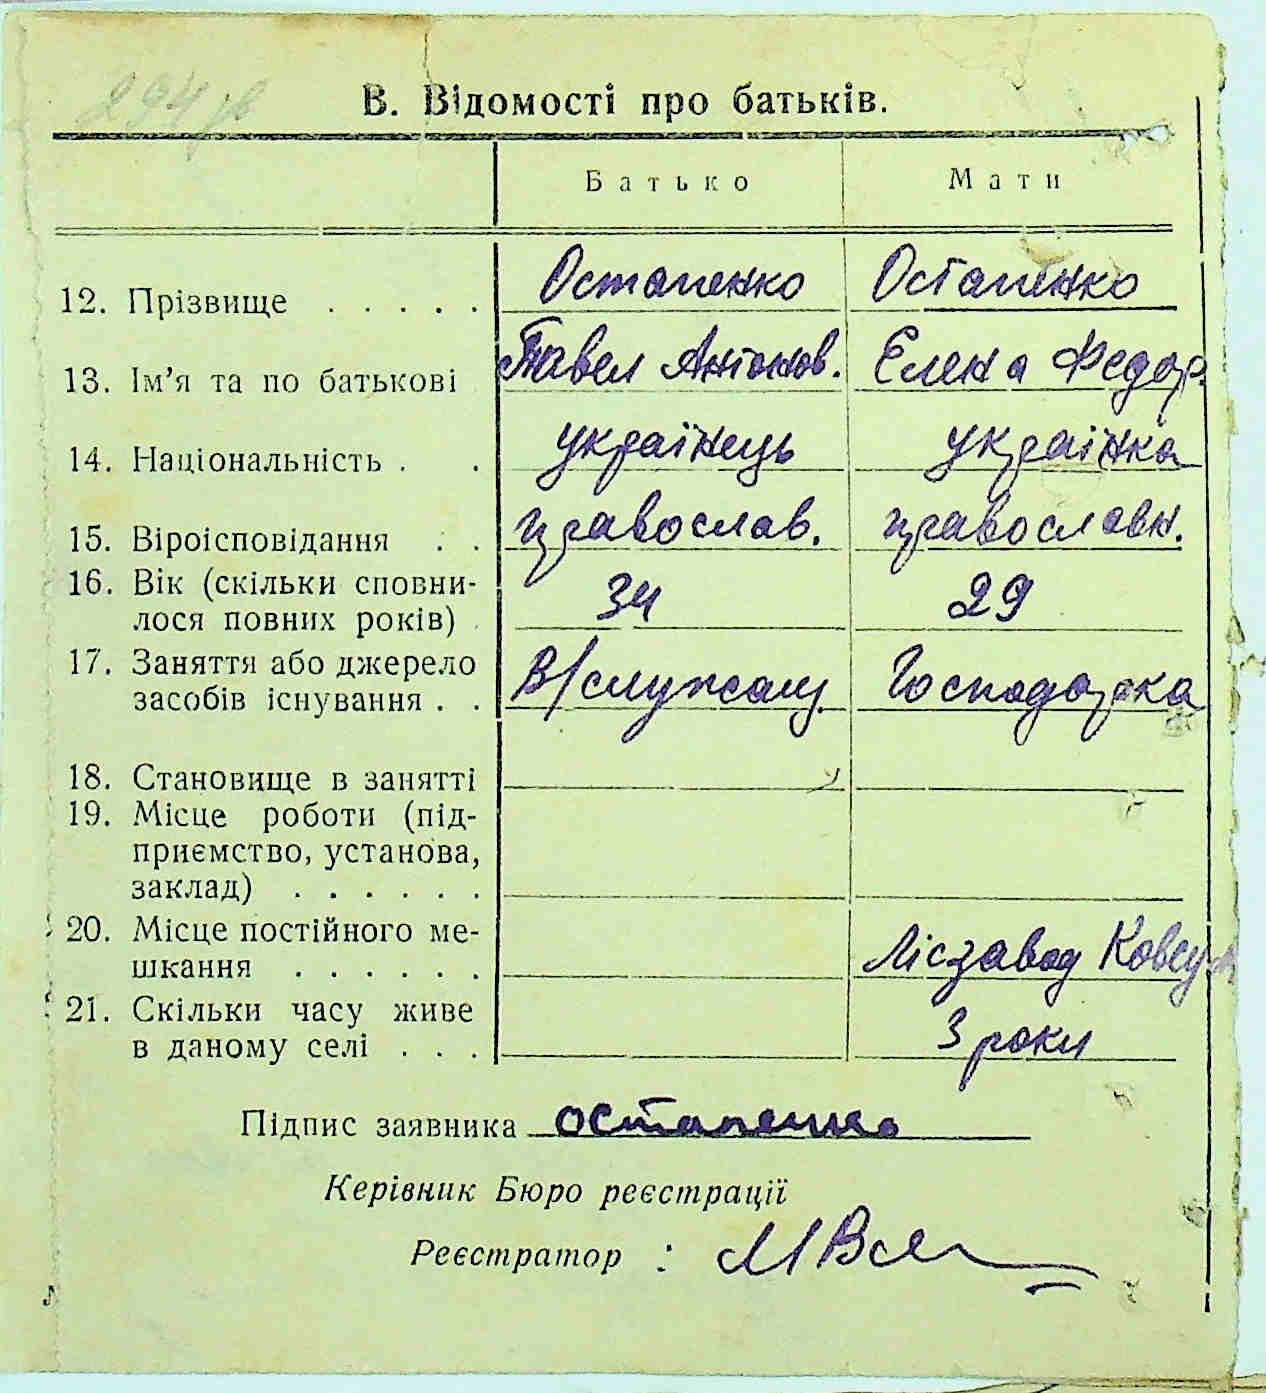 В. Відомості про батьків.
Батько Мати
12. Прізвище . . . . . Остапенко Остапенко
13. Ім'я та по батькові Павел Антонов. Елена Федор.
14. Національність . . українець українка
15. Віроісповідання . . православ. православн.
16. Вік (скільки сповни-
лося повних років) . 34 29
17. Заняття або джерело
засобів існування . . В/служащ. Господарка
18. Становище в занятті
19. Місце роботи (під-
приємство, установа,
заклад) . . . . . .
20. Місце постійного ме-
шкання . . . . . . Лісзавод
21. Скільки часу живе
в даному селі . . . 3 роки
Підпис заявника Остапенко
Керівник Бюро реєстрації
Реєстратор :